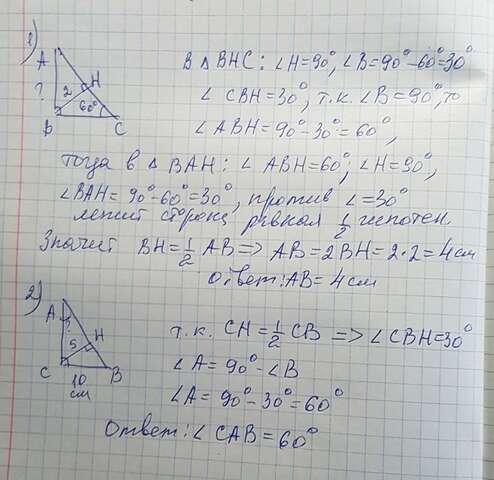 1)
A
?
2
H
60°
B
C
В △ BHC: ∠H=90°, ∠B=90°-60°=30°
∠ CBH=30°, т.к. ∠B=90°, то
∠ ABH=90°-30°=60°,
тогда в △ BAH: ∠ ABH=60°; ∠H=90°,
∠BAH=90°-60°=30°, против ∠=30°
лежит сторона, равная 1/2 гипотен.
Значит BH=1/2 AB=>AB=2BH=2·2=4см
Ответ: AB=4см
2)
A
?
5
H
C
B
10
см
т.к. CH=1/2 CB => ∠CBH=30°
∠A=90°-∠B
∠A=90°-30°=60°
Ответ: ∠CAB=60°